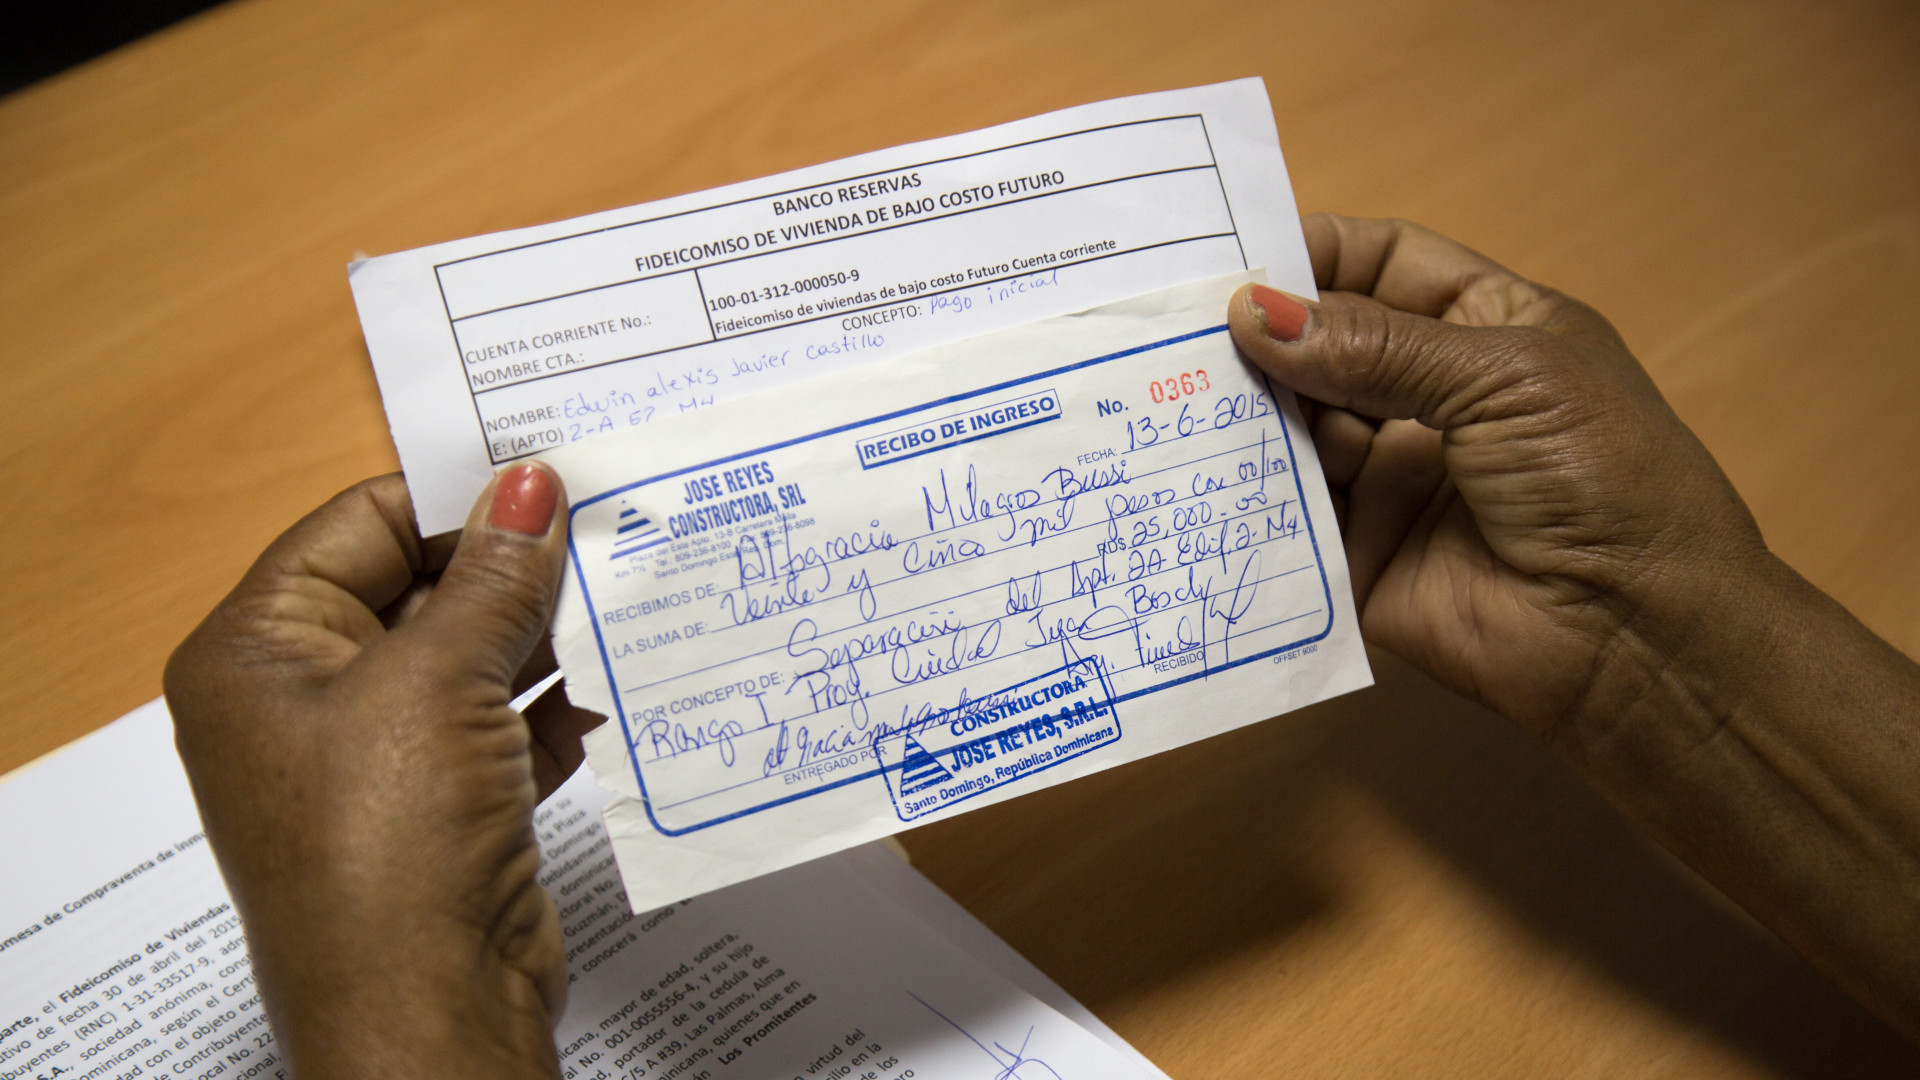 BANCO RESERVAS
FIDEICOMISO DE VIVIENDA DE BAJO COSTO FUTURO
CUENTA CORRIENTE No.: 100-01-312-000050-9
NOMBRE CTA.: Fideicomiso de viviendas de bajo costo Futuro Cuenta corriente
CONCEPTO: pago inicial
NOMBRE: Edwin alexis Javier castillo
E: (APTO) 2-A E7 M4
RECIBO DE INGRESO
No. 0363
JOSE REYES
CONSTRUCTORA, SRL
Plaza del Este Apto. 13-B Carretera Mella
Km 7½ Tel.: 809-236-8100
Santo Domingo Este, Rep. Dom.
FECHA: 13-6-2015
RECIBIMOS DE: Altagracia Milagros Bussi
LA SUMA DE: Veinte y Cinco mil pesos con 00/100
RD$ 25,000.00
POR CONCEPTO DE: Separación del Apt. 2A Edif. 2 M4
Rango I Proy. Ciudad Juan Bosch
ENTREGADO POR
RECIBIDO
OFF-SET 9000
CONSTRUCTORA
JOSE REYES, S.R.L.
Santo Domingo, República Dominicana
omesa de Compraventa de Inmu
parte, el Fideicomiso de Viviendas
utivo de fecha 30 de abril del 2015
ibuyentes (RNC) 1-31-33517-9, adm
S.A., sociedad anónima, const
ominicana, según el Certi
dad con el objeto exc
de Contribuyente
ocal No. 22
cional,
por su
la Plaza
Domingo
debidament
dominican
ctoral No.
Guzmán, D
presentación
e conocerá como
icana, mayor de edad, soltera,
al No. 001-0055556-4, y su hijo
d, portador de la cedula de
C/5 A #39, Las Palmas, Alma
minicana, quienes que en
Los Promitentes
virtud del
cilio en la
de los